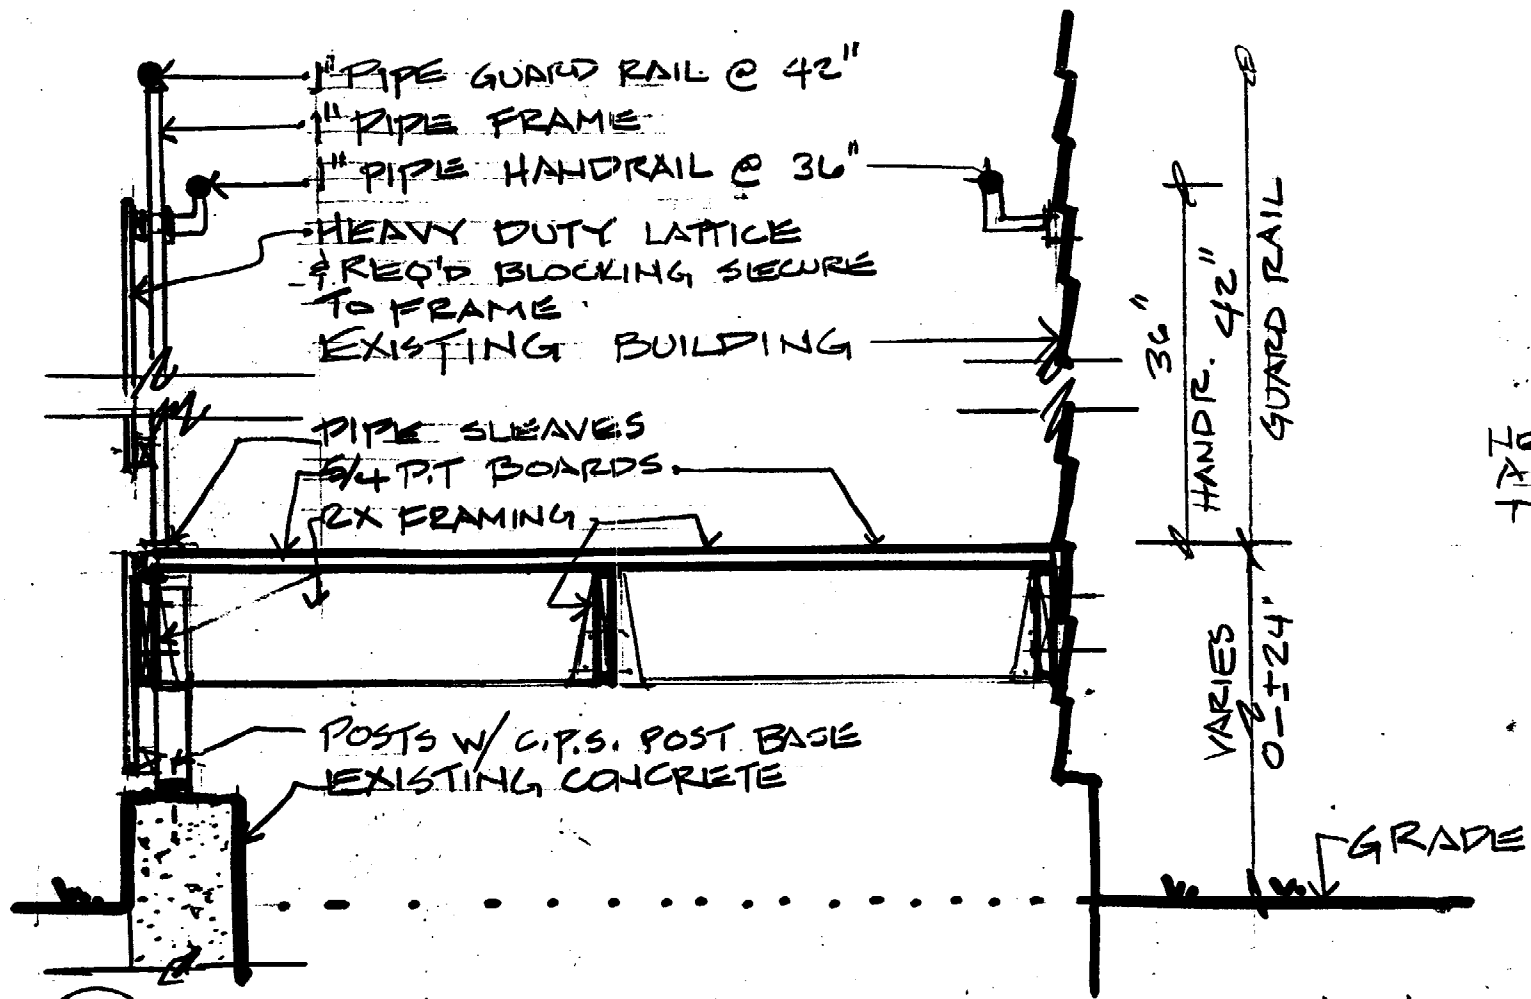 1" PIPE GUARD RAIL @ 42"
1" PIPE FRAME
1" PIPE HANDRAIL @ 36"
HEAVY DUTY LATTICE
& REQ'D BLOCKING SECURE
TO FRAME
EXISTING BUILDING
PIPE SLEAVES
5/4 P.T BOARDS
2X FRAMING
POSTS W/ C.P.S. POST BASE
EXISTING CONCRETE
36"
HANDR.
42"
GUARD RAIL
VARIES
0-±24"
GRADE